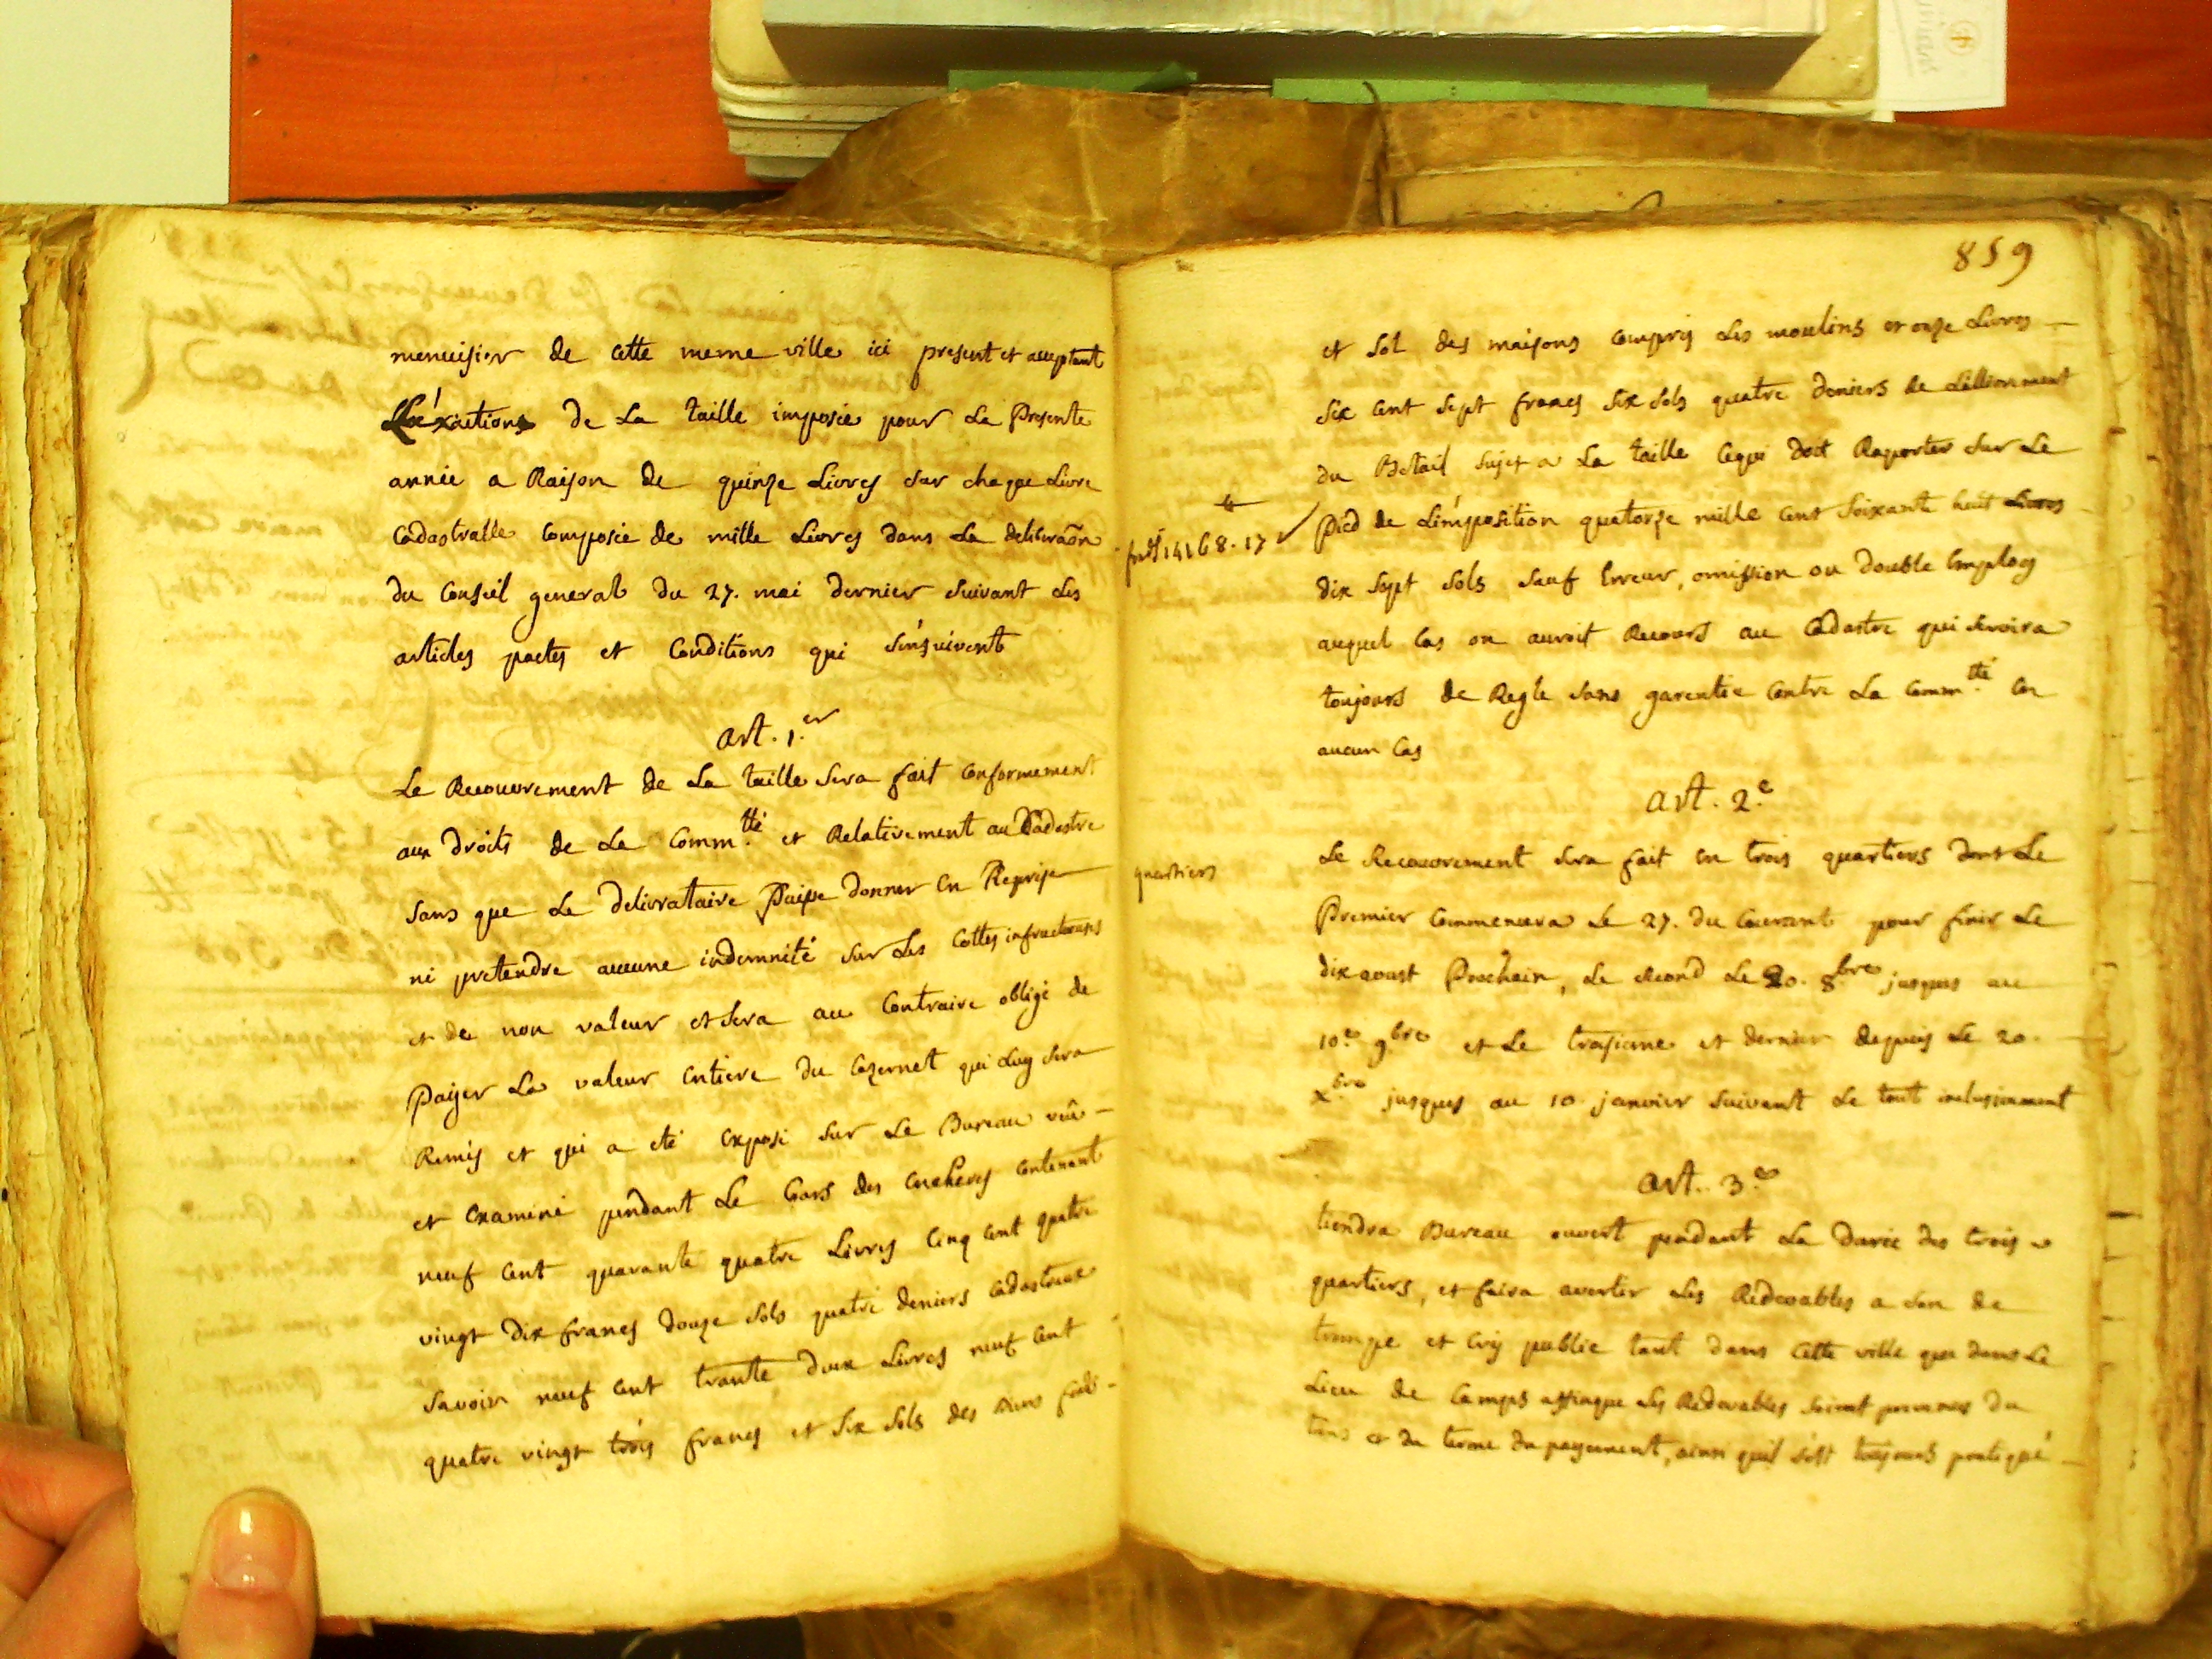 menuisier de cette meme ville ici present et acceptant
L'exaction de La taille imposée pour La Presente
année a Raison de quinze Livres sur chaque Livre
Cadastralle composée de mille Livres dans La deliberaôn
du Conseil general du 27. mai dernier suivant Les
articles pactes et Conditions qui s'ensuivent
art. 1.er
Le Recouvrement de La taille sera fait conformement
aux droits de La Comm.tté et Relativement au Cadastre
sans que Le delivrataire Puisse donner en Reprise
ni pretendre aucune indemnité sur Les cottes infructueuses
et de non valeur et sera au Contraire obligé de
Payer La valeur entiere du Cazernet qui Luy sera
Remis et qui a eté exposé sur Le Bureau vû
et Examiné pendant Le Cours des encheres contenant
neuf cent quarante quatre Livres Cinq cent quatre
vingt dix francs douze sols quatre deniers cadastraux
savoir neuf cent trante deux Livres neuf cent
quatre vingt trois francs et six sols des biens fonds
859
et sol des maisons compris Les moulins et onze Livres
six cent sept francs six sols quatre deniers de L'allivrement
du Betail sujet a La taille Cequi doit Raporter sur Le
Pied de L'imposition quatorze mille cent soixante huit Livres
14168.17
dix sept sols sauf Erreur, omission ou double Employ
auquel Cas on auroit Recours au Cadastre qui servira
toujours de Regle sans garentie contre La Comm.tté en
aucun Cas
art. 2.e
quartiers
Le Recouvrement sera fait en trois quartiers dont Le
Premier Commencera Le 27. du Courant pour finir Le
dix aoust Prochain, Le second Le 20. 8.bre jusques au
10.e 9bre et Le troisieme et dernier depuis Le 20.
x.bre jusques au 10. janvier suivant Le tout inclusivement
art. 3.e
tiendra Bureau ouvert pendant La durée des trois
quartiers, et faira avertir Les Redevables a son de
trompe et Cry public tant dans Cette ville que dans Le
Lieu de Camps affinque Les Redevables soient prevenus du
tens et du terme du payement, ainsi qu'il s'est toujours pratiqué